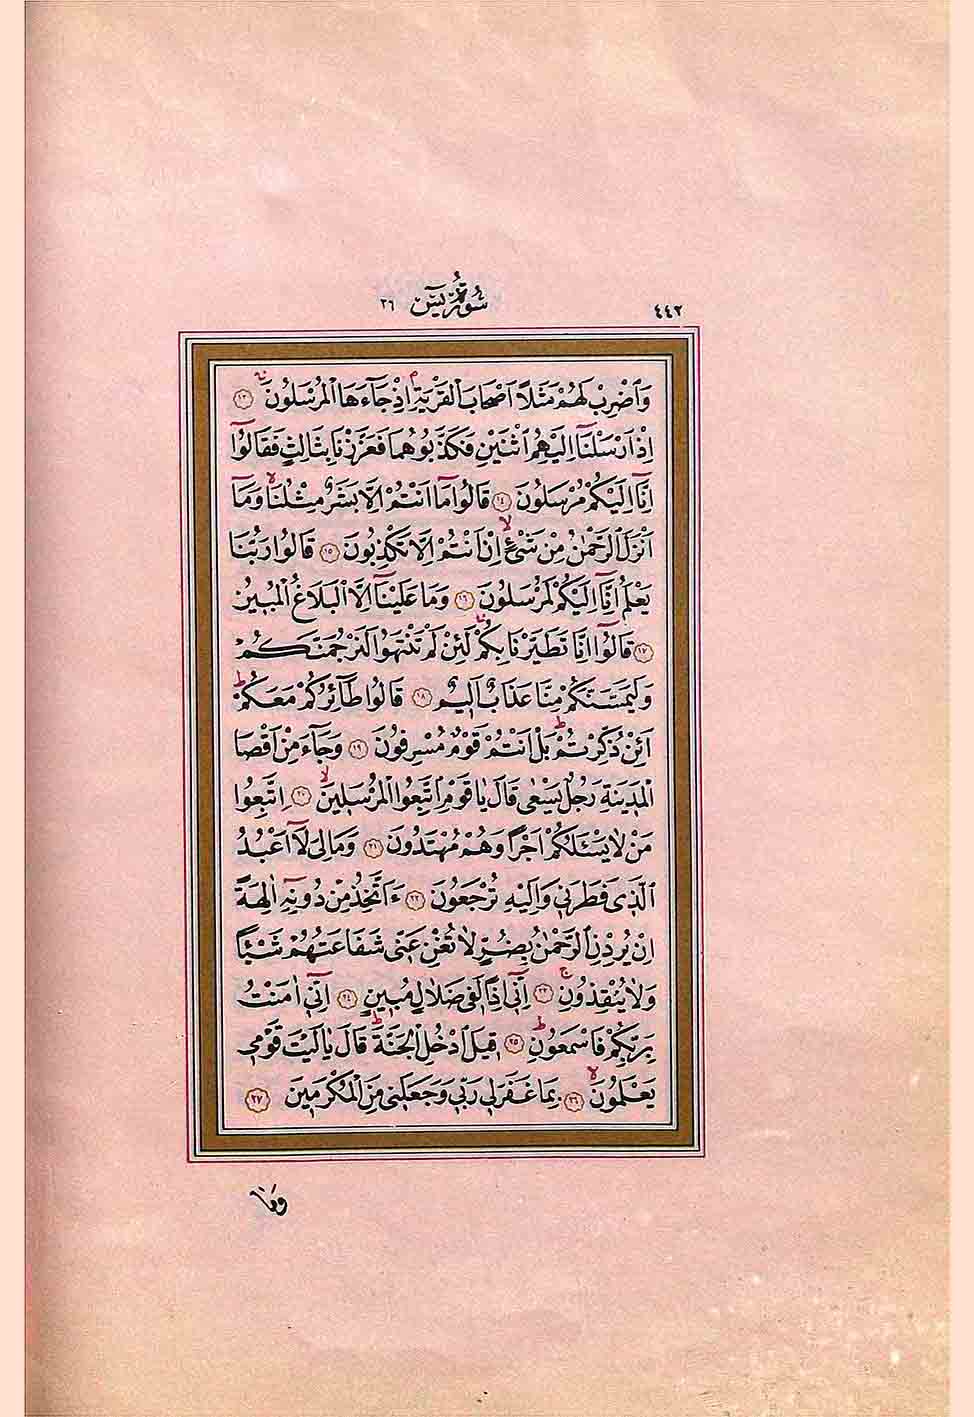 ٤٤٢
سُورَةُ يٰسٓ ٣٦
وَاضْرِبْ لَهُمْ مَثَلًا اَصْحَابَ الْقَرْيَةِۘ اِذْ جَٓاءَهَا الْمُرْسَلُونَۚ ﴿١٣﴾
اِذْ اَرْسَلْنَٓا اِلَيْهِمُ اثْنَيْنِ فَكَذَّبُوهُمَا فَعَزَّزْنَا بِثَالِثٍ فَقَالُٓوا
اِنَّٓا اِلَيْكُمْ مُرْسَلُونَ ﴿١٤﴾ قَالُوا مَٓا اَنْتُمْ اِلَّا بَشَرٌ مِثْلُنَاۙ وَمَٓا
اَنْزَلَ الرَّحْمٰنُ مِنْ شَيْءٍۙ اِنْ اَنْتُمْ اِلَّا تَكْذِبُونَ ﴿١٥﴾ قَالُوا رَبُّنَا
يَعْلَمُ اِنَّٓا اِلَيْكُمْ لَمُرْسَلُونَ ﴿١٦﴾ وَمَا عَلَيْنَٓا اِلَّا الْبَلَاغُ الْمُبِينُ
﴿١٧﴾ قَالُٓوا اِنَّا تَطَيَّرْنَا بِكُمْۚ لَئِنْ لَمْ تَنْتَهُوا لَنَرْجُمَنَّكُمْ
وَلَيَمَسَّنَّكُمْ مِنَّا عَذَابٌ اَلِيمٌ ﴿١٨﴾ قَالُوا طَٓائِرُكُمْ مَعَكُمْۜ
اَئِنْ ذُكِّرْتُمْۜ بَلْ اَنْتُمْ قَوْمٌ مُسْرِفُونَ ﴿١٩﴾ وَجَٓاءَ مِنْ اَقْصَا
الْمَدِينَةِ رَجُلٌ يَسْعٰى قَالَ يَا قَوْمِ اتَّبِعُوا الْمُرْسَلِينَۙ ﴿٢٠﴾ اِتَّبِعُوا
مَنْ لَا يَسْـَٔلُكُمْ اَجْرًا وَهُمْ مُهْتَدُونَ ﴿٢١﴾ وَمَا لِيَ لَٓا اَعْبُدُ
الَّذِي فَطَرَنِي وَاِلَيْهِ تُرْجَعُونَ ﴿٢٢﴾ ءَاَتَّخِذُ مِنْ دُونِهِٓ اٰلِهَةً
اِنْ يُرِدْنِ الرَّحْمٰنُ بِضُرٍّ لَا تُغْنِ عَنِّي شَفَاعَتُهُمْ شَيْـًٔا
وَلَا يُنْقِذُونِۚ ﴿٢٣﴾ اِنِّٓي اِذًا لَفِي ضَلَالٍ مُبِينٍ ﴿٢٤﴾ اِنِّٓي اٰمَنْتُ
بِرَبِّكُمْ فَاسْمَعُونِۜ ﴿٢٥﴾ قِيلَ ادْخُلِ الْجَنَّةَۜ قَالَ يَا لَيْتَ قَوْمِي
يَعْلَمُونَۙ ﴿٢٦﴾ بِمَا غَفَرَ لِي رَبِّي وَجَعَلَنِي مِنَ الْمُكْرَمِينَ ﴿٢٧﴾
وَمَا